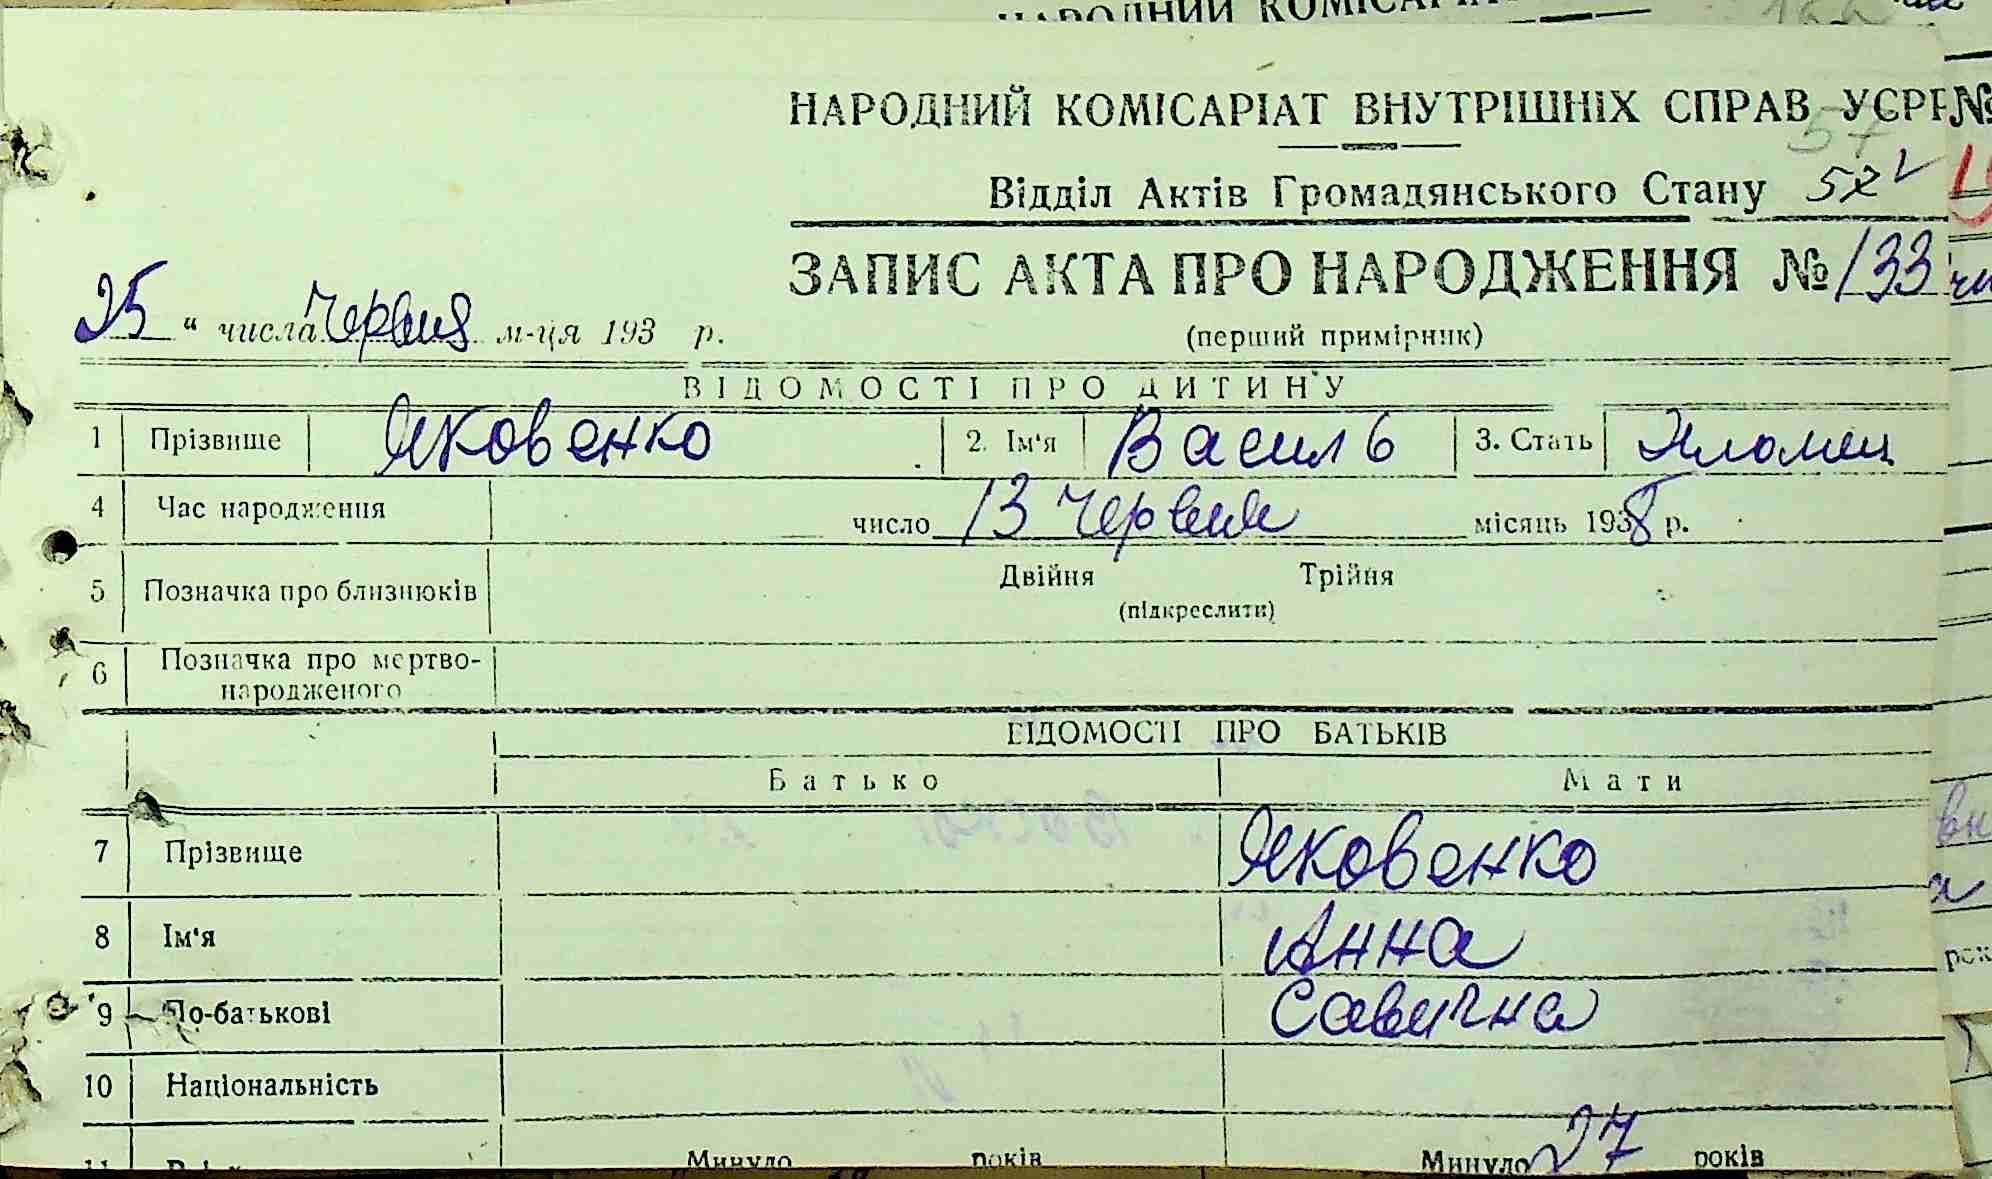 НАРОДНИЙ КОМІСАРІАТ
НАРОДНИЙ КОМІСАРІАТ ВНУТРІШНІХ СПРАВ УСРР
№
57
Відділ Актів Громадянського Стану 52
ЗАПИС АКТА ПРО НАРОДЖЕННЯ № 133
25 " числа Червня м-ця 193 р.
(перший примірник)
ВІДОМОСТІ ПРО ДИТИНУ
1 Прізвище Яковенко 2. Ім'я Василь 3. Стать Хломец
4 Час народження число 13 Червня місяць 1938 р.
5 Позначка про близнюків Двійня Трійня
(підкреслити)
6 Позначка про мертво-
народженого
ВІДОМОСТІ ПРО БАТЬКІВ
Батько Мати
7 Прізвище Яковенко
8 Ім'я Анна
9 По-батькові Савична
10 Національність
11 Минуло років Минуло 27 років